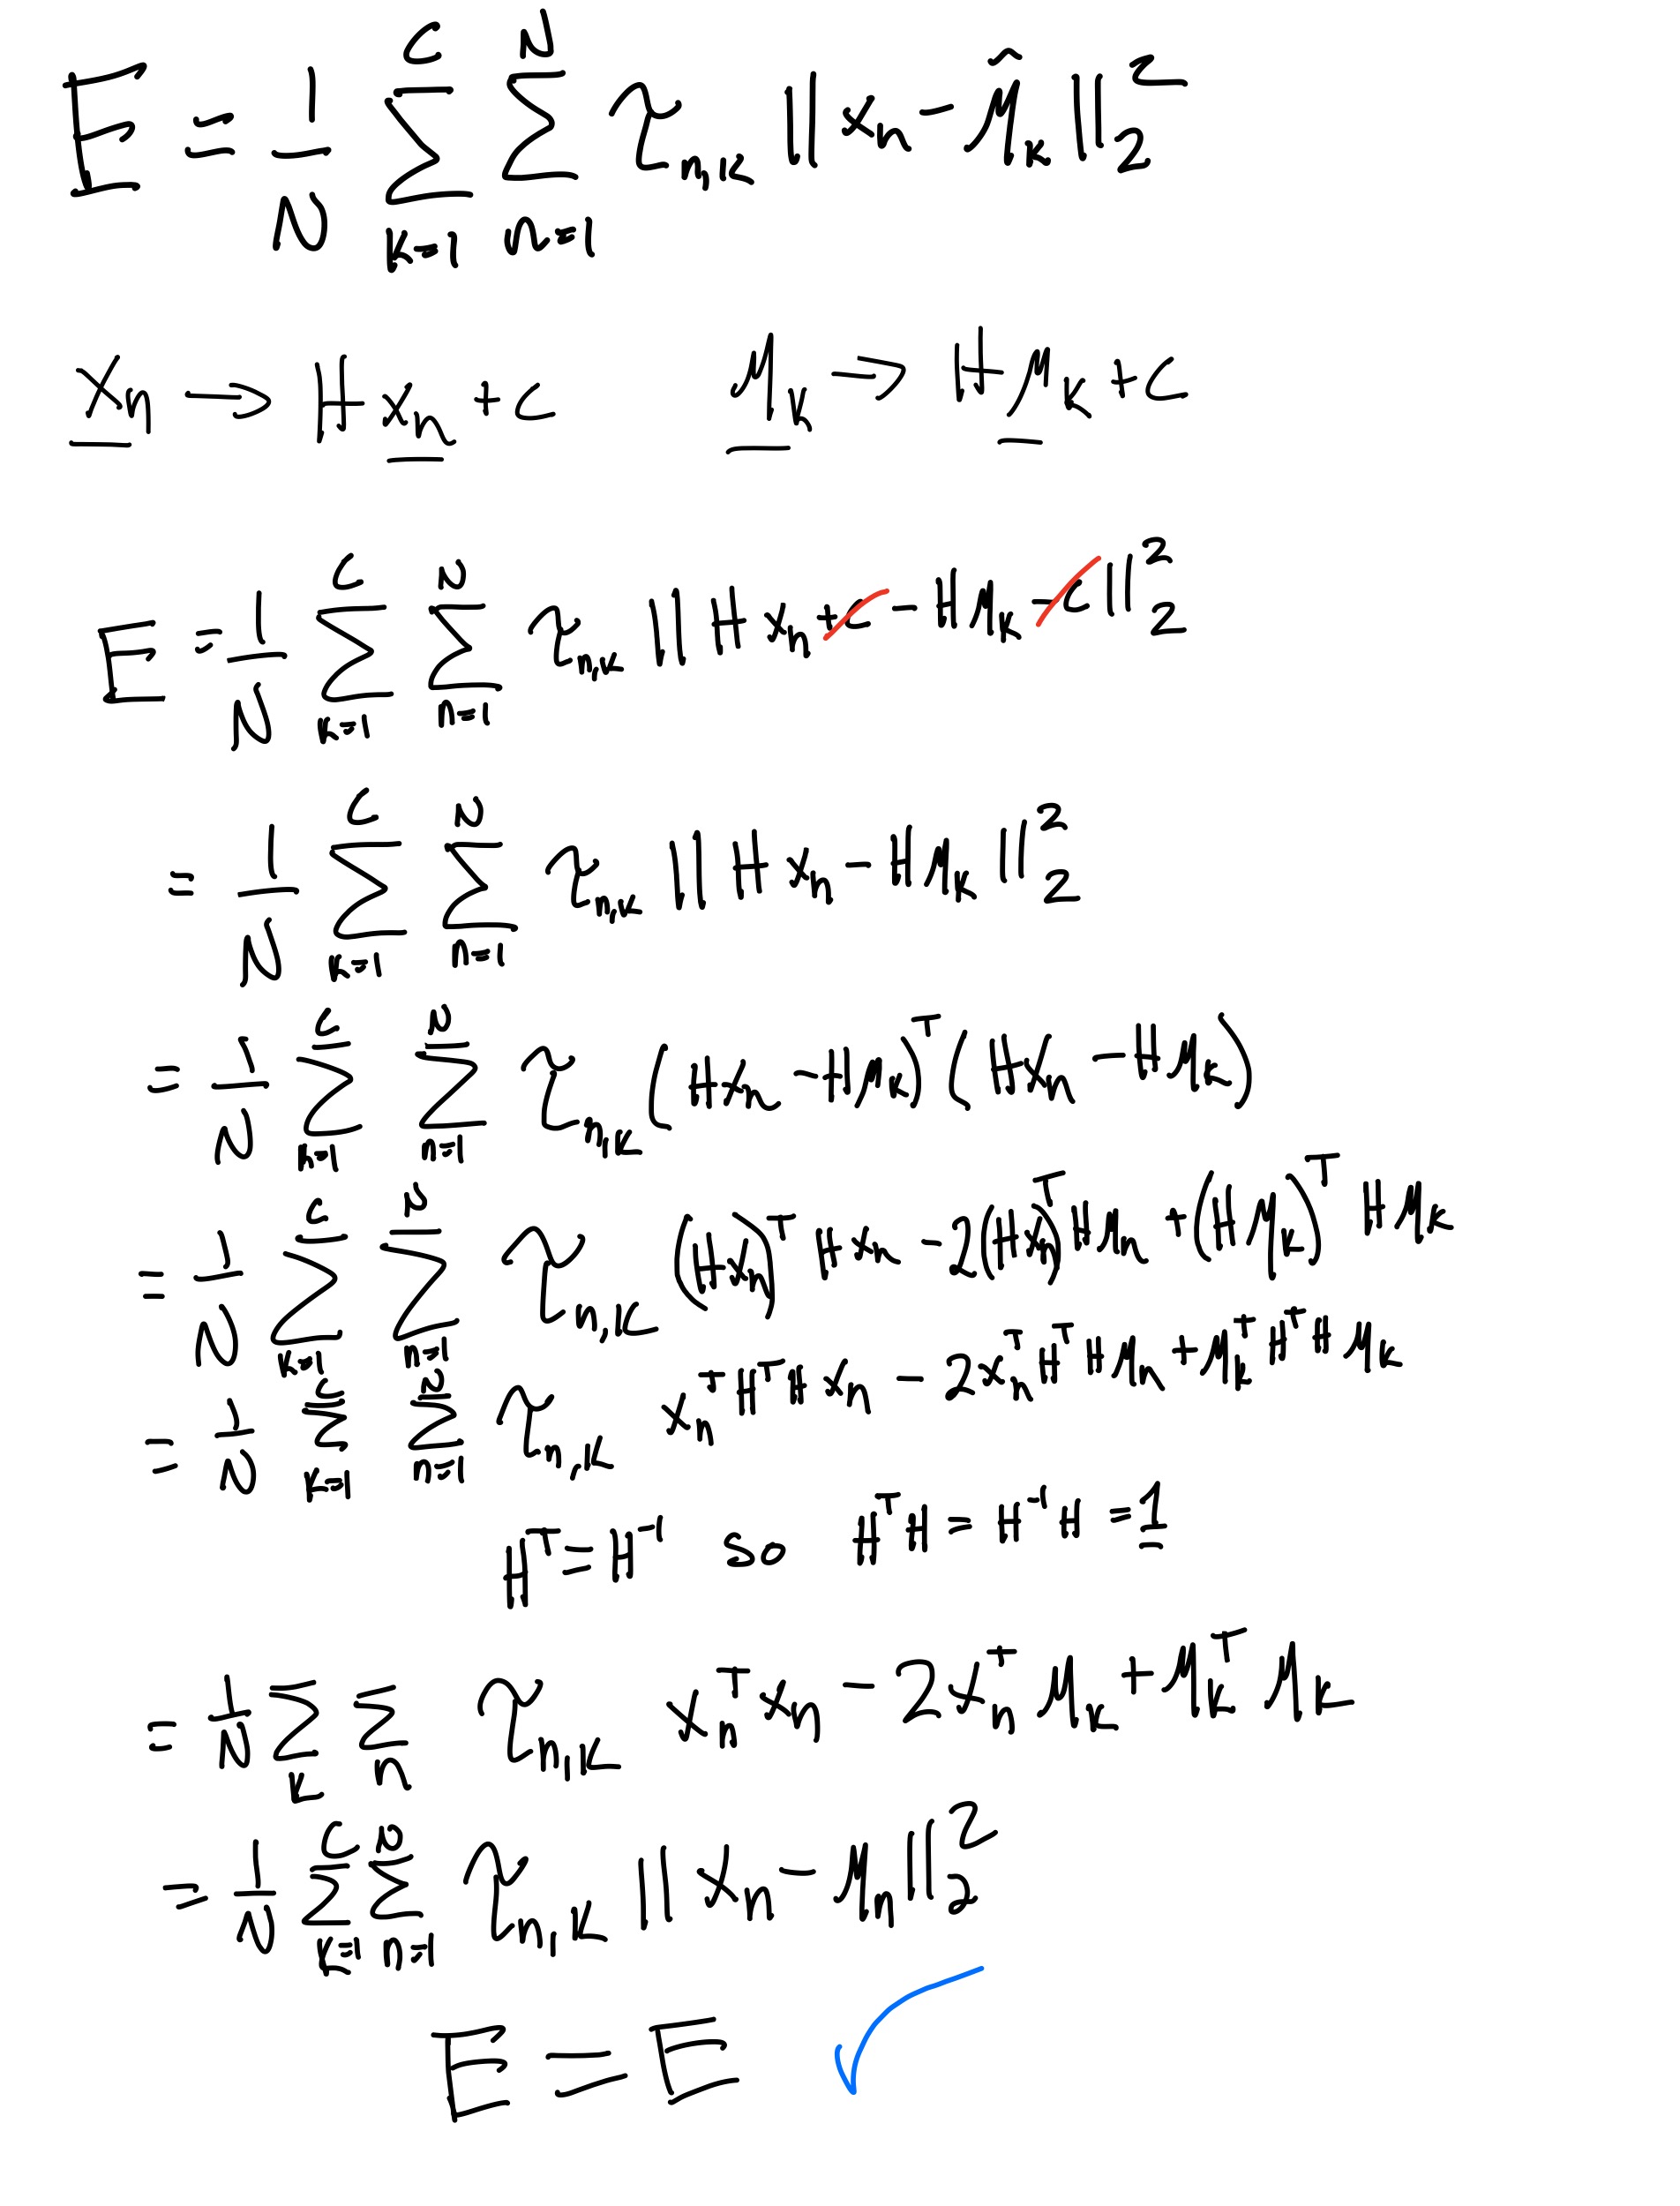 E = 1/N Σ_{k=1}^{C} Σ_{n=1}^{N} r_{n,k} ‖x_n − μ̃_k‖_2^2
x_n → H x_n + c    μ_k → H μ_k + c
E = 1/N Σ_{k=1}^{C} Σ_{n=1}^{N} r_{n,k} ‖H x_n + c − H μ_k − c‖_2^2
= 1/N Σ_{k=1}^{C} Σ_{n=1}^{N} r_{n,k} ‖H x_n − H μ_k‖_2^2
= 1/N Σ_{k=1}^{C} Σ_{n=1}^{N} r_{n,k} (H x_n − H μ_k)^T (H x_n − H μ_k)
= 1/N Σ_{k=1}^{C} Σ_{n=1}^{N} r_{n,k} (H x_n)^T H x_n − 2(H x_n)^T H μ_n + (H μ_k)^T H μ_k
= 1/N Σ_{k=1}^{C} Σ_{n=1}^{N} r_{n,k} x_n^T H^T H x_n − 2 x_n^T H^T H μ_n + μ_k^T H^T H μ_k
H^T = H^{-1} so H^T H = H^{-1} H = 1
= 1/N Σ_k Σ_n r_{n,k} x_n^T x_n − 2 x_n^T μ_k + μ_k^T μ_k
= 1/N Σ_{k=1}^{C} Σ_{n=1}^{N} r_{n,k} ‖x_n − μ_n‖_2^2
E = E ✓